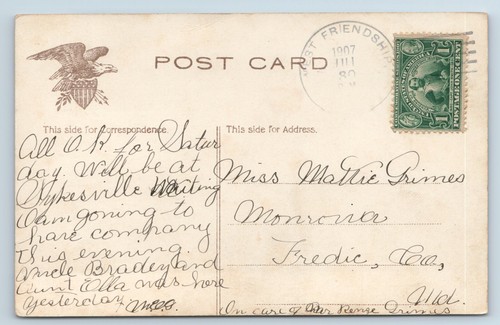 POST CARD
WEST FRIENDSHIP
1907
JUL
30
This side for Correspondence.
This side for Address.
POSTAGE ONE CENT
1 1
All O.K. for Satur
day. Will be at
Sykesville Waiting
I am goning to
have company
this evening.
Uncle Bradey and
Aunt Ella was here
yesterday
Miss Mattie Grimes
Monrovia
Fredic, Co,
Md.
In care of Mr Rense Grimes